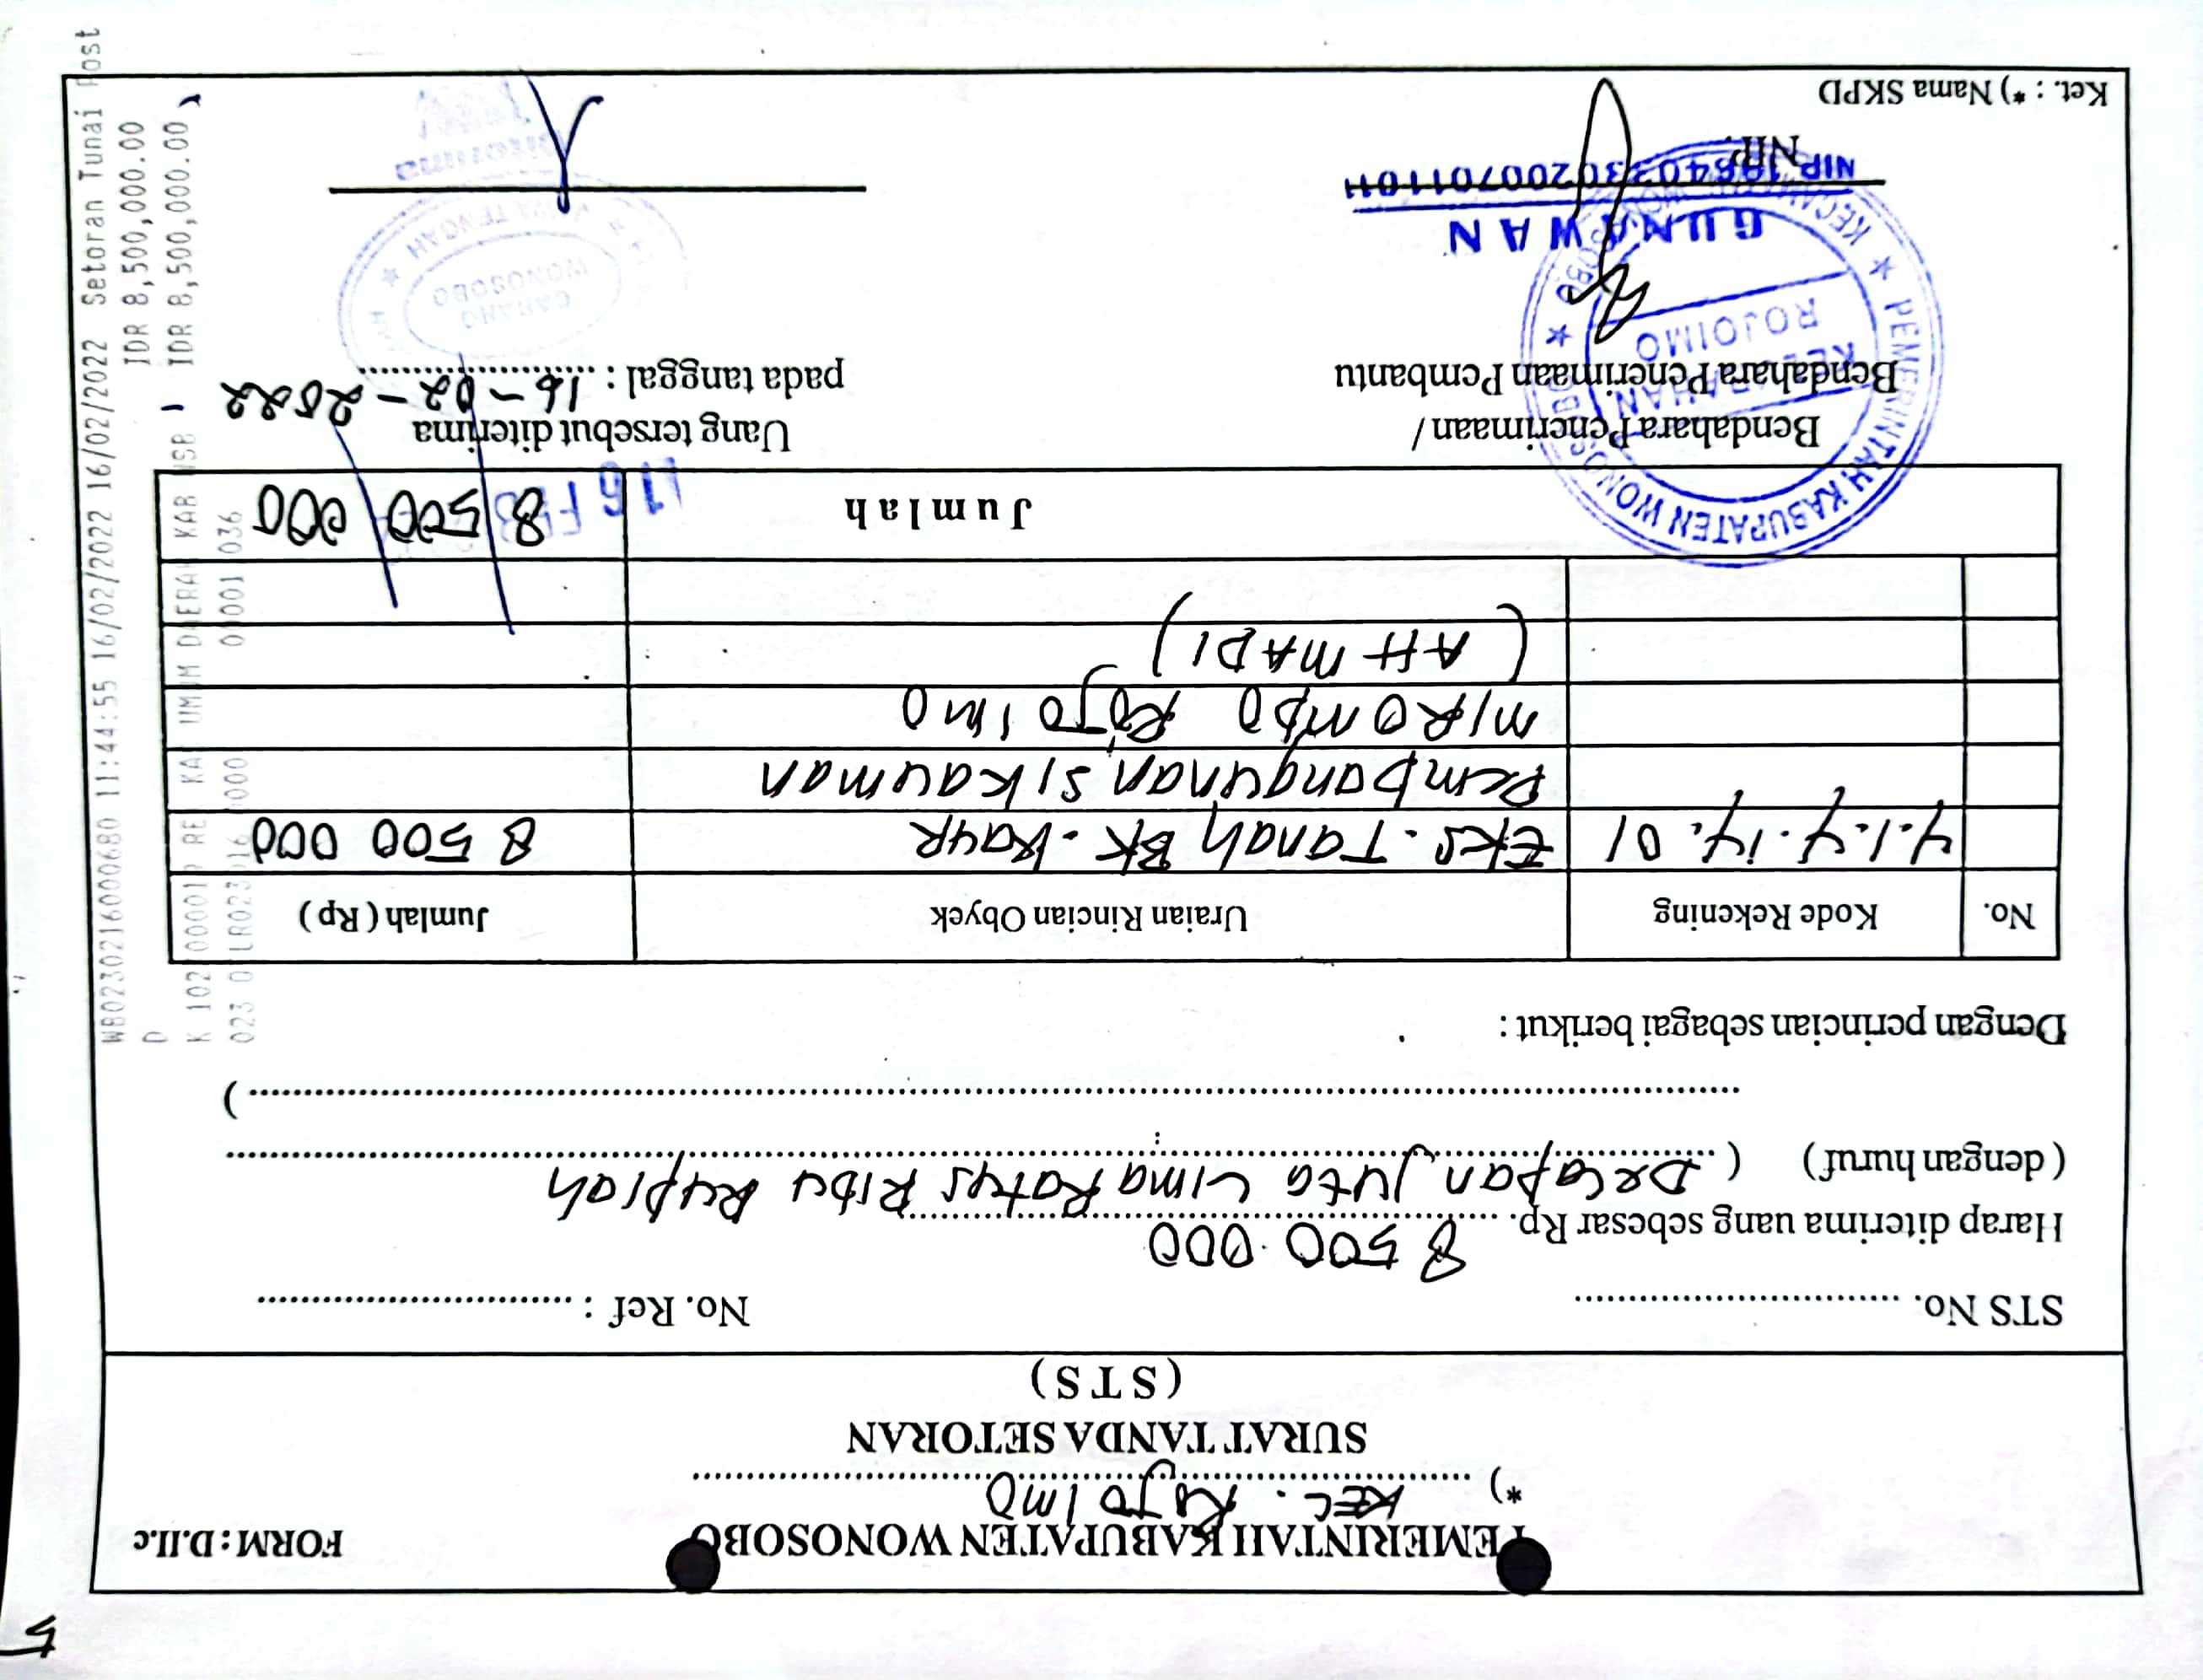 5
PEMERINTAH KABUPATEN WONOSOBO
FORM : D.II.c
*) KEC. ROJOIMO
SURAT TANDA SETORAN
( S T S )
STS No. ........................ No. Ref : ........................
Harap diterima uang sebesar Rp. 8 500.000
( dengan huruf ) ( Delapan juta Lima Ratus Ribu Rupiah
)
Dengan perincian sebagai berikut :
No. Kode Rekening Uraian Rincian Obyek Jumlah ( Rp )
4.1.4.14.01 Eks. Tanah BK. 8 500 000
Pembangunan sikauman
MIROMBO ROJOIMO
( AHMADI )
J u m l a h 8 500 000
16 FEB
Bendahara Penerimaan /
Bendahara Penerimaan Pembantu
Uang tersebut diterima
pada tanggal : 16-02-2022
PEMERINTAH KABUPATEN WONOSOBO
KELURAHAN
ROJOIMO
KECAMATAN WONOSOBO
GUNAWAN
NIP
NIP.
CABANG
WONOSOBO
JAWA TENGAH
Diterima
Ket. : *) Nama SKPD
WB0230216000680 11:44:55 16/02/2022 16/02/2022 Setoran Tunai Post
D IDR 8,500,000.00
K 102 RE KA UMUM DAERAH KAB WSB - IDR 8,500,000.00
023 0001 036